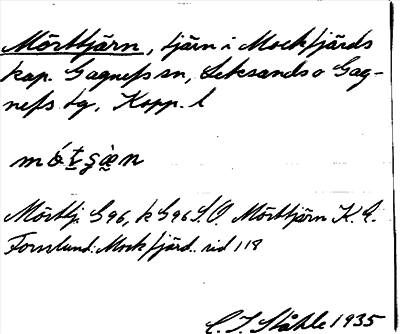 Mörttjärn, tjärn i Mockfjärds
kap. Gagnefs sn, Leksands o Gag-
nefs tg, Kopp. l
Mörttj. G96, k G96 S.O. Mörttjärn K. E.
Forsslund: Mockfjärd. sid 118
C. I. Ståhle 1935